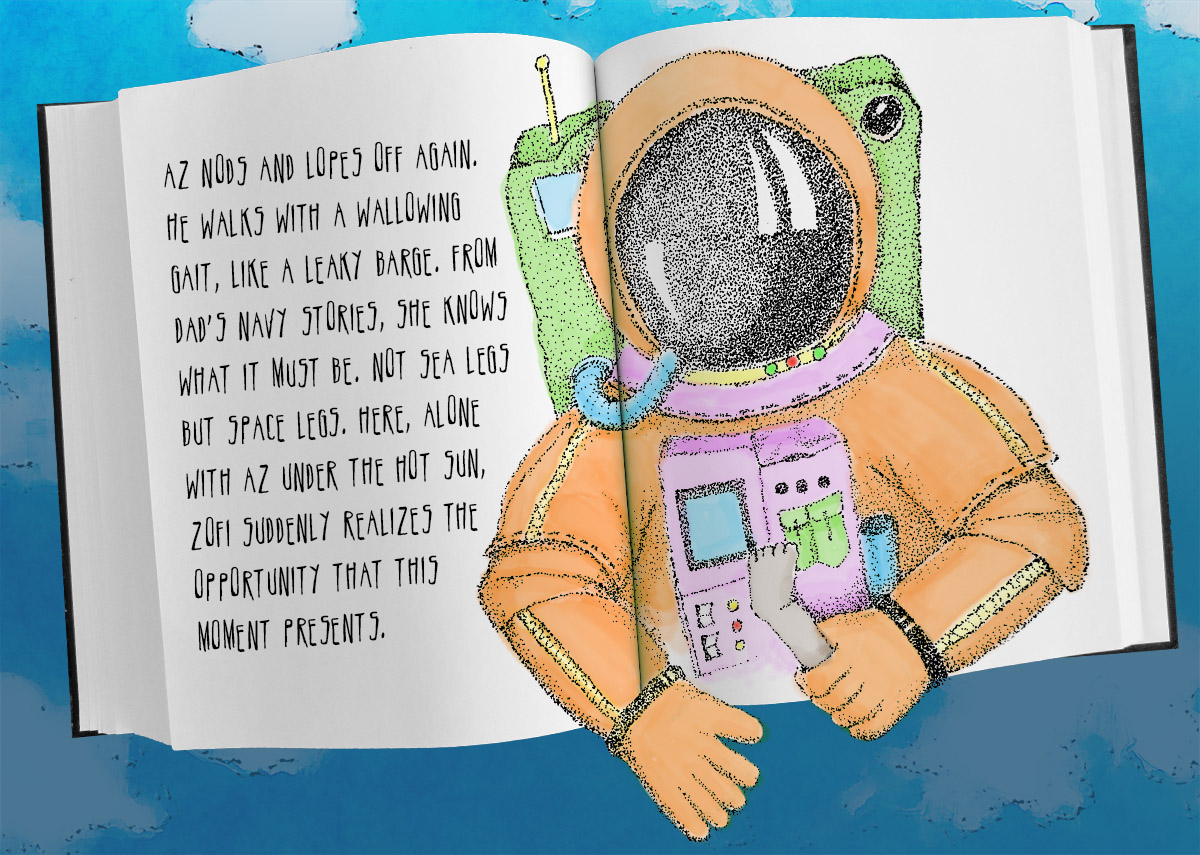 AZ NODS AND LOPES OFF AGAIN.
HE WALKS WITH A WALLOWING
GAIT, LIKE A LEAKY BARGE. FROM
DAD'S NAVY STORIES, SHE KNOWS
WHAT IT MUST BE. NOT SEA LEGS
BUT SPACE LEGS. HERE, ALONE
WITH AZ UNDER THE HOT SUN,
ZOFI SUDDENLY REALIZES THE
OPPORTUNITY THAT THIS
MOMENT PRESENTS.